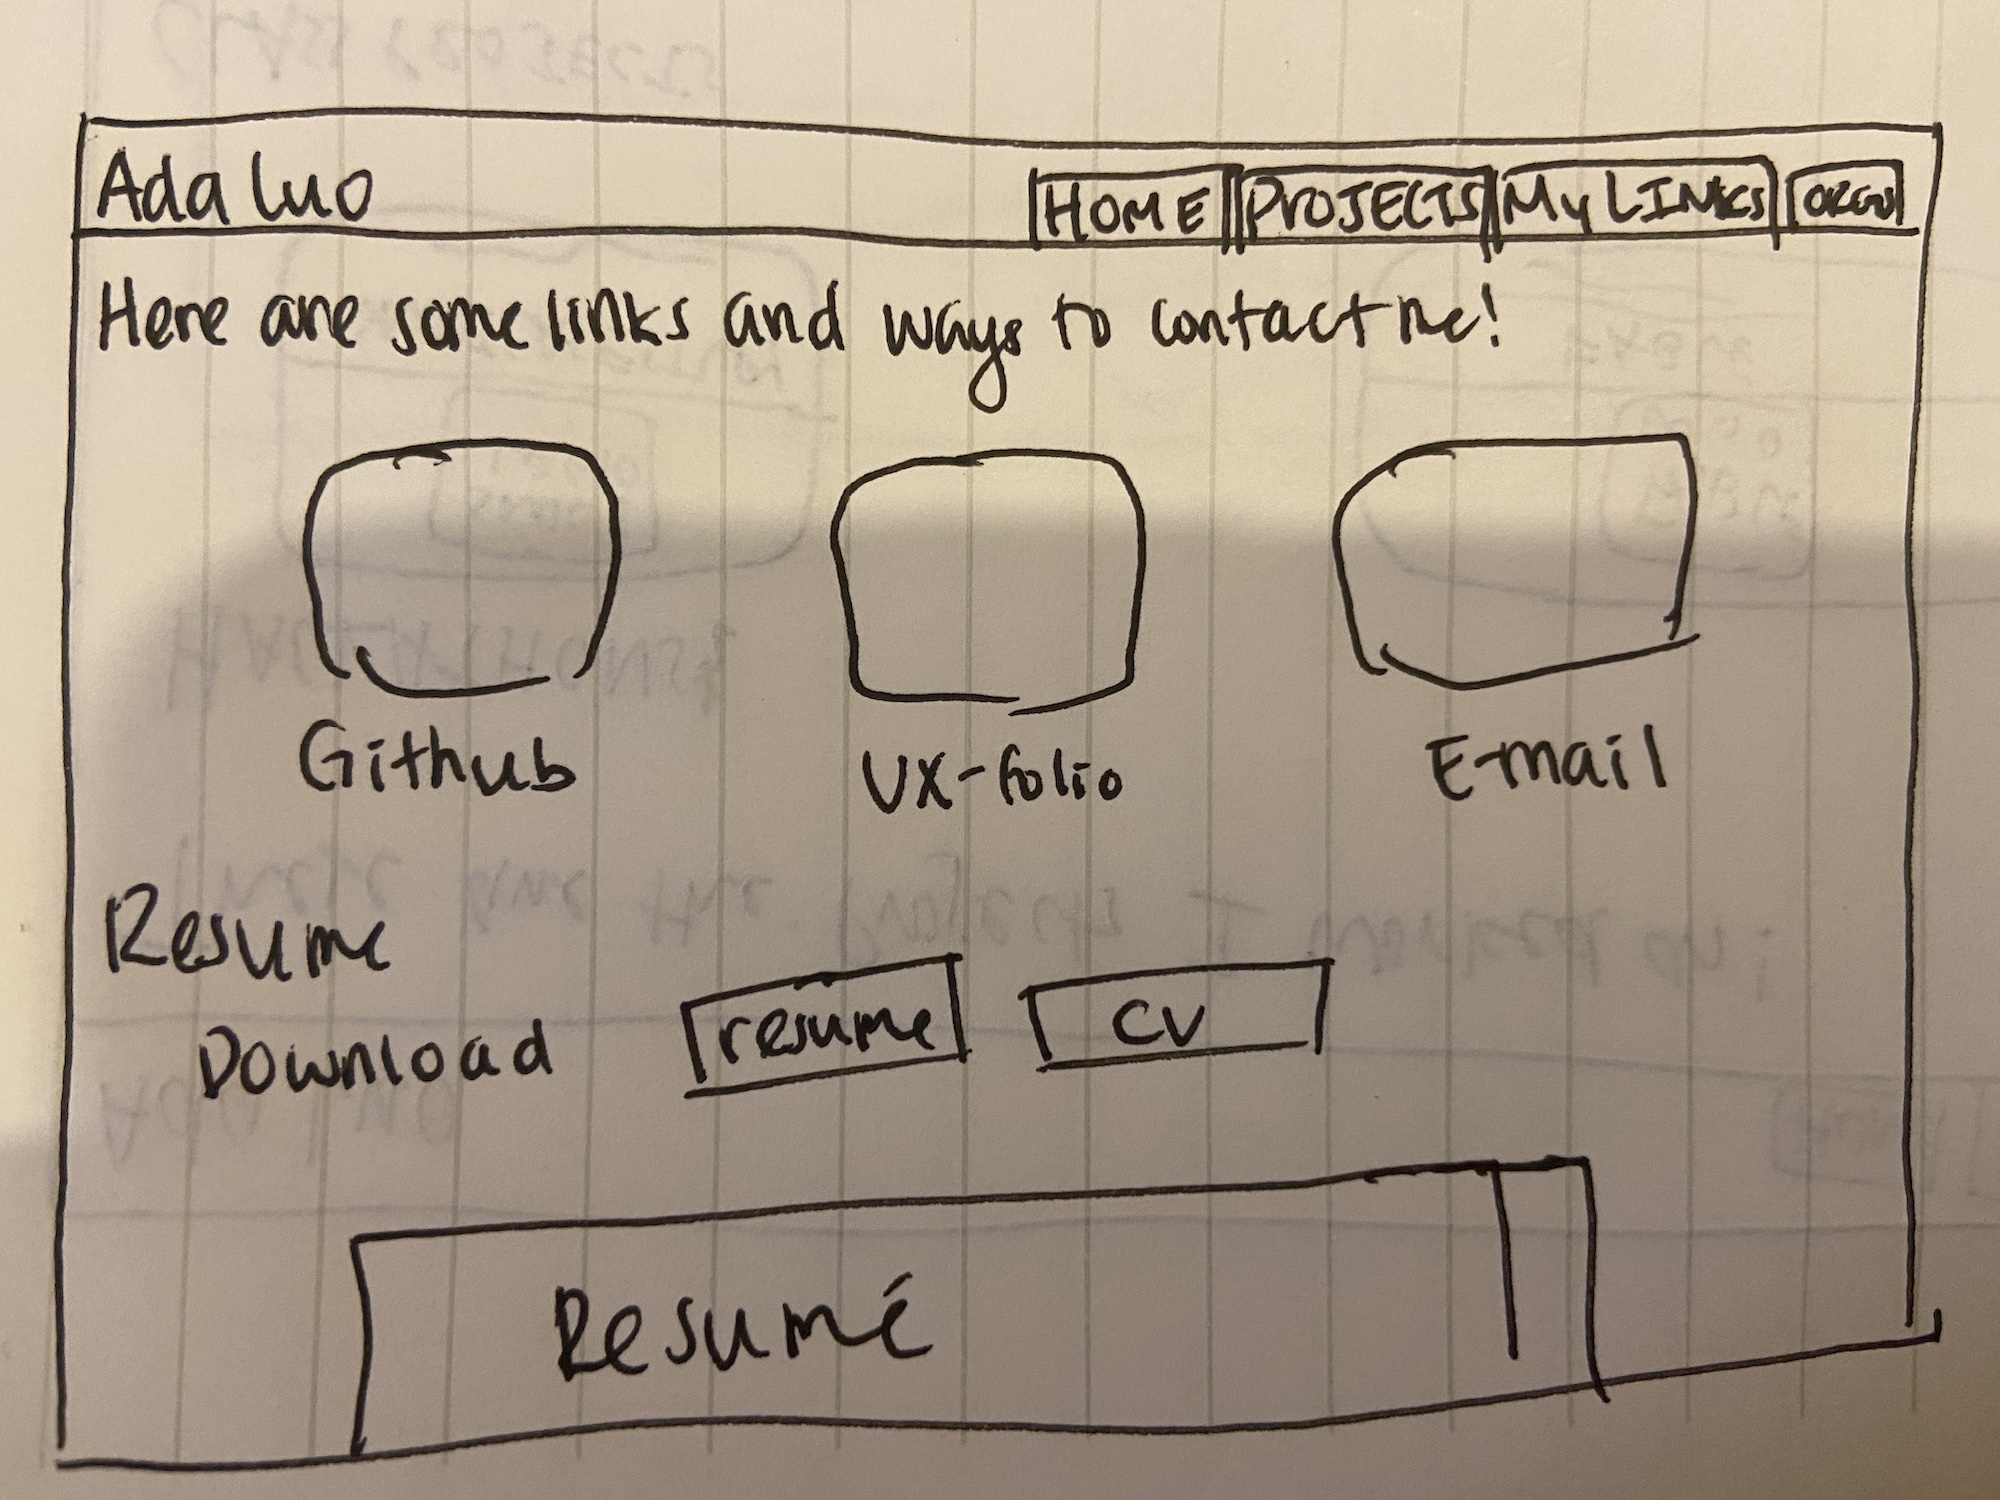 Ada Luo
HOME PROJECTS My LINKS ORGS
Here are some links and ways to contact me!
Github UX-folio E-mail
Resume
Download resume CV
Resumé